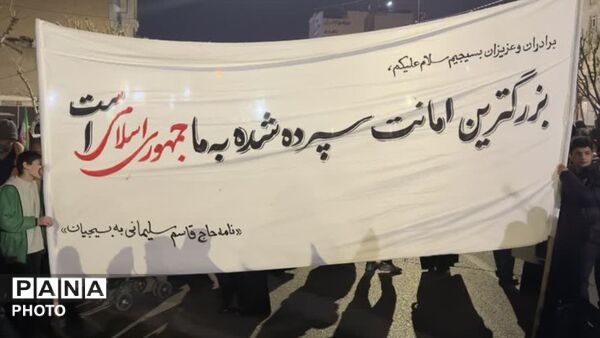 برادران و عزیزان بسیجیم سلام علیکم،
بزرگترین امانت سپرده شده به ما جمهوری اسلامی است
«نامه حاج قاسم سلیمانی به بسیجیان»
PANA
PHOTO